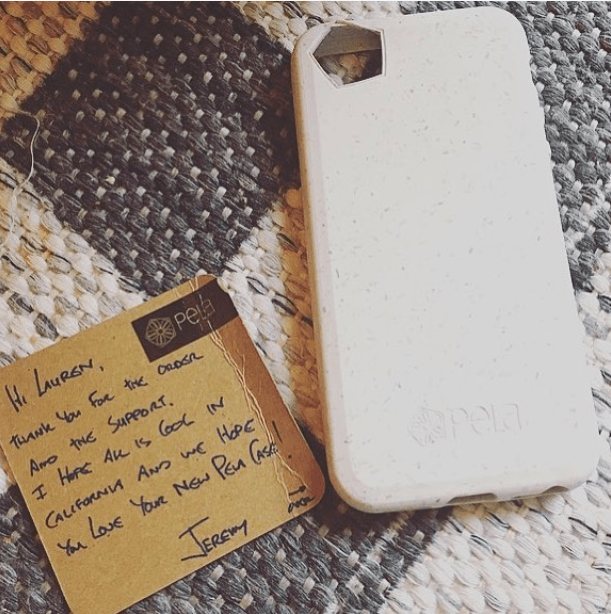 PELA
HI LAUREN,
THANK YOU FOR THE ORDER
AND THE SUPPORT.
I HOPE ALL IS COOL IN
CALIFORNIA AND WE HOPE
YOU LOVE YOUR NEW PELA CASE!
JEREMY
OVER
PELA